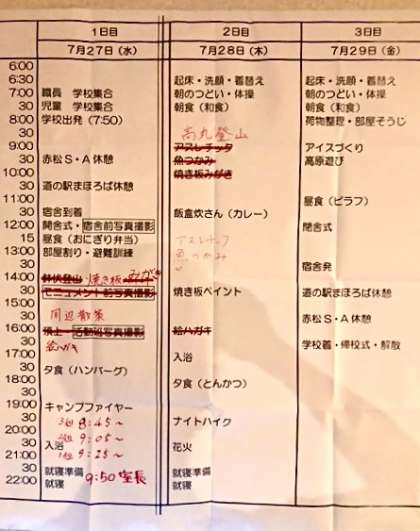 1日目 2日目 3日目
7月27日(水) 7月28日(木) 7月29日(金)
6:00
6:30 起床・洗顔・着替え 起床・洗顔・着替え
7:00 職員 学校集合 朝のつどい・体操 朝のつどい・体操
30 児童 学校集合 朝食(和食) 朝食(和食)
8:00 学校出発(7:50) 荷物整理・部屋そうじ
30 高丸登山
9:00 アスレチッタ アイスづくり
30 赤松S・A休憩 魚つかみ 高原遊び
10:00 焼き板みがき
30 道の駅まほろば休憩
11:00 昼食(ピラフ)
30 宿舎到着 飯盒炊さん(カレー)
12:00 開舎式・宿舎前写真撮影 閉舎式
15 昼食(おにぎり弁当) アスレチック
13:00 部屋割り・避難訓練 魚つかみ
30 宿舎発
14:00 焼き板みがき
30 モニュメント前写真撮影 焼き板ペイント 道の駅まほろば休憩
15:00
30 周辺散策 赤松S・A休憩
16:00 頂上・活動班写真撮影 絵ハガキ
30 絵ハガキ 学校着・帰校式・解散
17:00 入浴
30 夕食(ハンバーグ)
18:00 夕食(とんかつ)
30
19:00 キャンプファイヤー
30 8:45~ ナイトハイク
20:00
30 入浴 9:05~ 花火
21:00 9:25~
30 就寝準備 就寝準備
22:00 就寝 9:50 室長 就寝